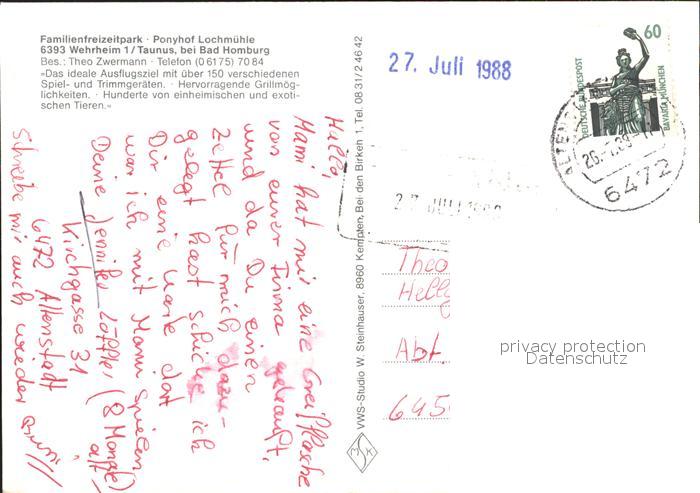 Familienfreizeitpark · Ponyhof Lochmühle
6393 Wehrheim 1/Taunus, bei Bad Homburg
Bes.: Theo Zwermann · Telefon (0 61 75) 70 84
»Das ideale Ausflugsziel mit über 150 verschiedenen
Spiel- und Trimmgeräten. · Hervorragende Grillmög-
lichkeiten. · Hunderte von einheimischen und exoti-
schen Tieren.«
Hallo,
Mami hat mir eine Greifflasche
von eurer Firma gekauft,
und da Du einen
Zettel für mich dazu-
gelegt hast schicke ich
Dir eine Karte dort
war ich mit Mami spielen
Deine Jennifer Löffler (8 Monate)
alt
Kirchgasse 31
6472 Altenstadt
Schreibe mir auch wieder
VWS-Studio W. Steinhauser, 8960 Kempten, Bei den Birken 1, Tel. 08 31/2 46 42
MSK
27. Juli 1988
27. JULI 1988
60
DEUTSCHE BUNDESPOST
BAVARIA MÜNCHEN
ALTEN
6472
Theo
Abt.
645
privacy protection
Datenschutz